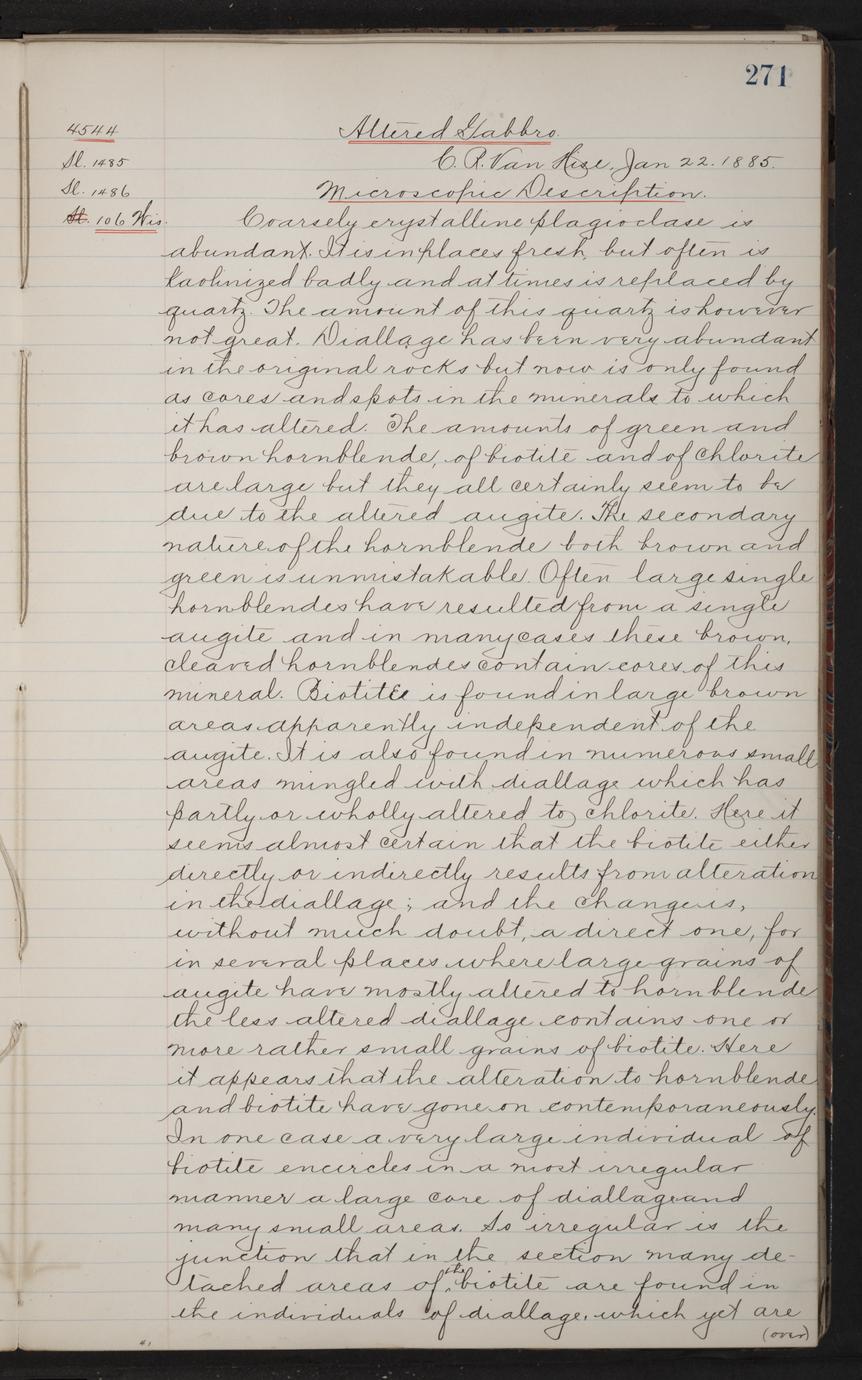 271
4544
Altered Gabbro.
Sl. 1485
C. R. Van Hise, Jan 22. 1885.
Sl. 1486
Microscopic Description.
St. 106 Wis.
Coarsely crystalline plagioclase is
abundant. It is in places fresh, but often is
kaolinized badly and at times is replaced by
quartz. The amount of this quartz is however
not great. Diallage has been very abundant
in the original rocks but now is only found
as cores and spots in the minerals to which
it has altered. The amounts of green and
brown hornblende, of biotite and of chlorite
are large but they all certainly seem to be
due to the altered augite. The secondary
nature of the hornblende both brown and
green is unmistakable. Often large single
hornblendes have resulted from a single
augite and in many cases these brown,
cleaved hornblendes contain cores of this
mineral. Biotite is found in large brown
areas apparently independent of the
augite. It is also found in numerous small
areas mingled with diallage which has
partly or wholly altered to chlorite. Here it
seems almost certain that the biotite either
directly or indirectly results from alteration
in the diallage; and the change is,
without much doubt, a direct one, for
in several places where large grains of
augite have mostly altered to hornblende
the less altered diallage contains one or
more rather small grains of biotite. Here
it appears that the alteration to hornblende
and biotite have gone on contemporaneously.
In one case a very large individual of
biotite encircles in a most irregular
manner a large core of diallage and
many small areas. So irregular is the
junction that in the section many de-
tached areas of the biotite are found in
the individuals of diallage, which yet are
(over)